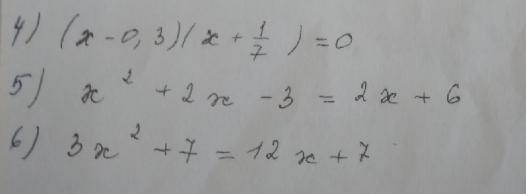 4) (x - 0,3)(x + 1/7) = 0
5) x² + 2x - 3 = 2x + 6
6) 3x² + 7 = 12x + 7